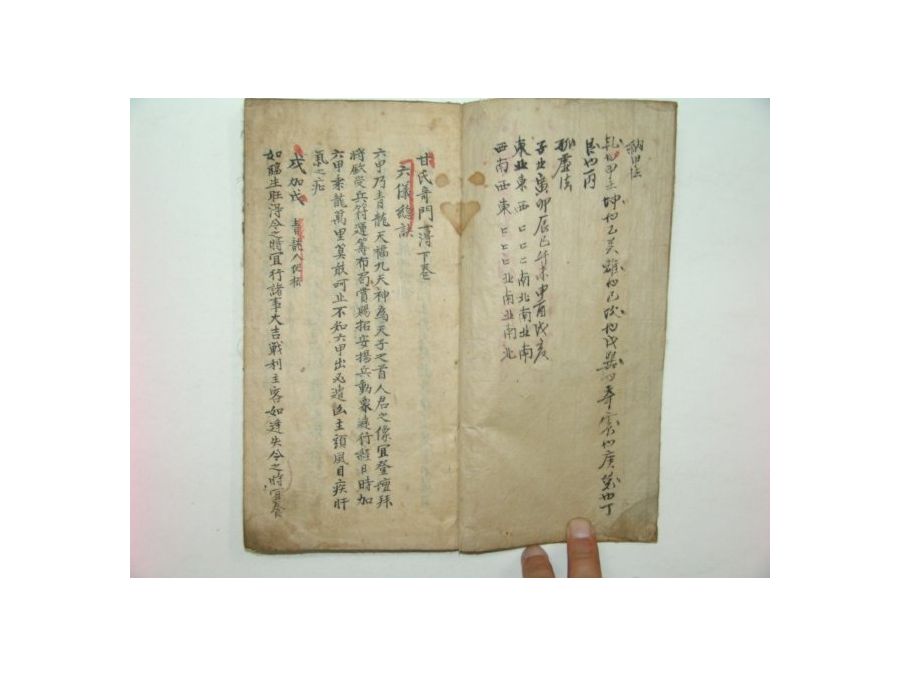 納甲法
乾納甲壬 坤納乙癸 離納己 坎納戊 巽納辛 震納庚 兌納丁
艮納丙
孤虛法
子丑寅卯辰巳午未申酉戌亥
東北東西
西南西東
甘氏奇門一得下卷
六儀總訣
六甲乃青龍天福九天神為天子之首人君之像宜登壇拜
將啟受兵符運籌布局賞賜招安揚兵動眾遠行程日時加
六甲乘龍萬里莫敢呵止不知六甲出必遭 主頭風目疾肝
氣之症
戊加戊 青龍入地格
如臨生旺得令之時宜行諸事大吉戰利主客如逢失令之時宜養